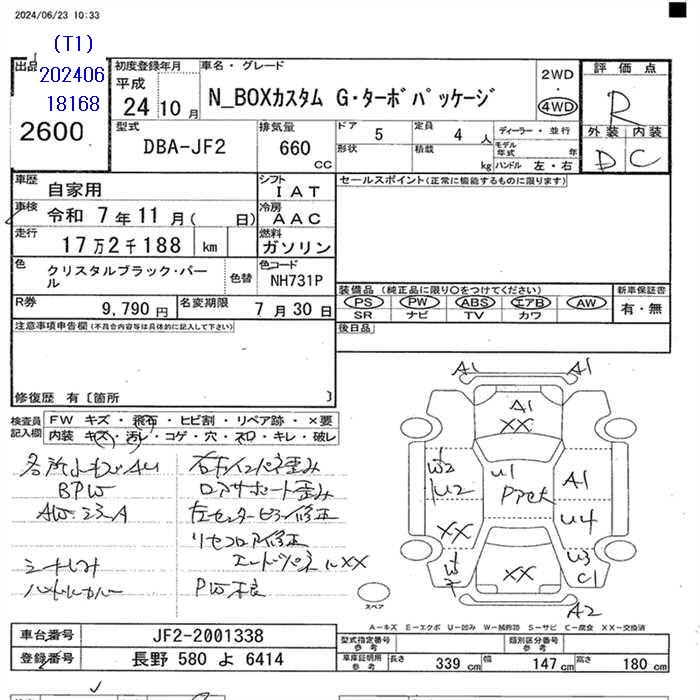 2024/06/23 10:33
(T1)
出品 202406
18168
2600
初度登録年月 車名・グレード
平成 24 10月 N_BOXカスタム G・ターボパッケージ
2WD
・
4WD
評価点
R
外装 内装
D C
型式 DBA-JF2
排気量 660 CC
ドア 5 定員 4 人
形状 積載 kg
ディーラー・並行
モデル年式 年
ハンドル 左・右
車歴 自家用 シフト IAT
車検 令和 7年 11月( 日) 冷房 AAC
走行 17万2千188 km 燃料 ガソリン
色 クリスタルブラック・パール 色替 色コード NH731P
R券 9,790円 名変期限 7月30日
セールスポイント(正常に機能するものに限ります)
装備品 (純正品に限り○をつけてください) 新車保証書
PS PW ABS エアB AW 有・無
SR ナビ TV カワ
後日品
注意事項申告欄(不具合内容等は具体的に記入して下さい)
修復歴 有〔箇所 〕
検査員記入欄
FW キズ・飛石・ヒビ割・リペア跡・×要
内装 キズ・汚レ・コゲ・穴・ネロ・キレ・破レ
各所小キズAU
BPW
AW・ススA
シートしみ
ハンドルカバー
右インパネ歪み
ロアサポート歪み
左センターピラー修正
リヤフロア修正
エンドパネルXX
PW不良
A1 A1
A1
XX
W2
U2
U1
Pアと
A1
U4
XX
W
XX
U3
C1
A2
スペア
A-キズ E-エクボ U-凹み W-補修跡 S-サビ C-腐食 XX-交換済
車台番号 JF2-2001338
登録番号 長野 580 よ 6414
型式指定番号 参考 類別区分番号 参考
車庫証明用 参考 長さ 339cm 幅 147cm 高さ 180cm